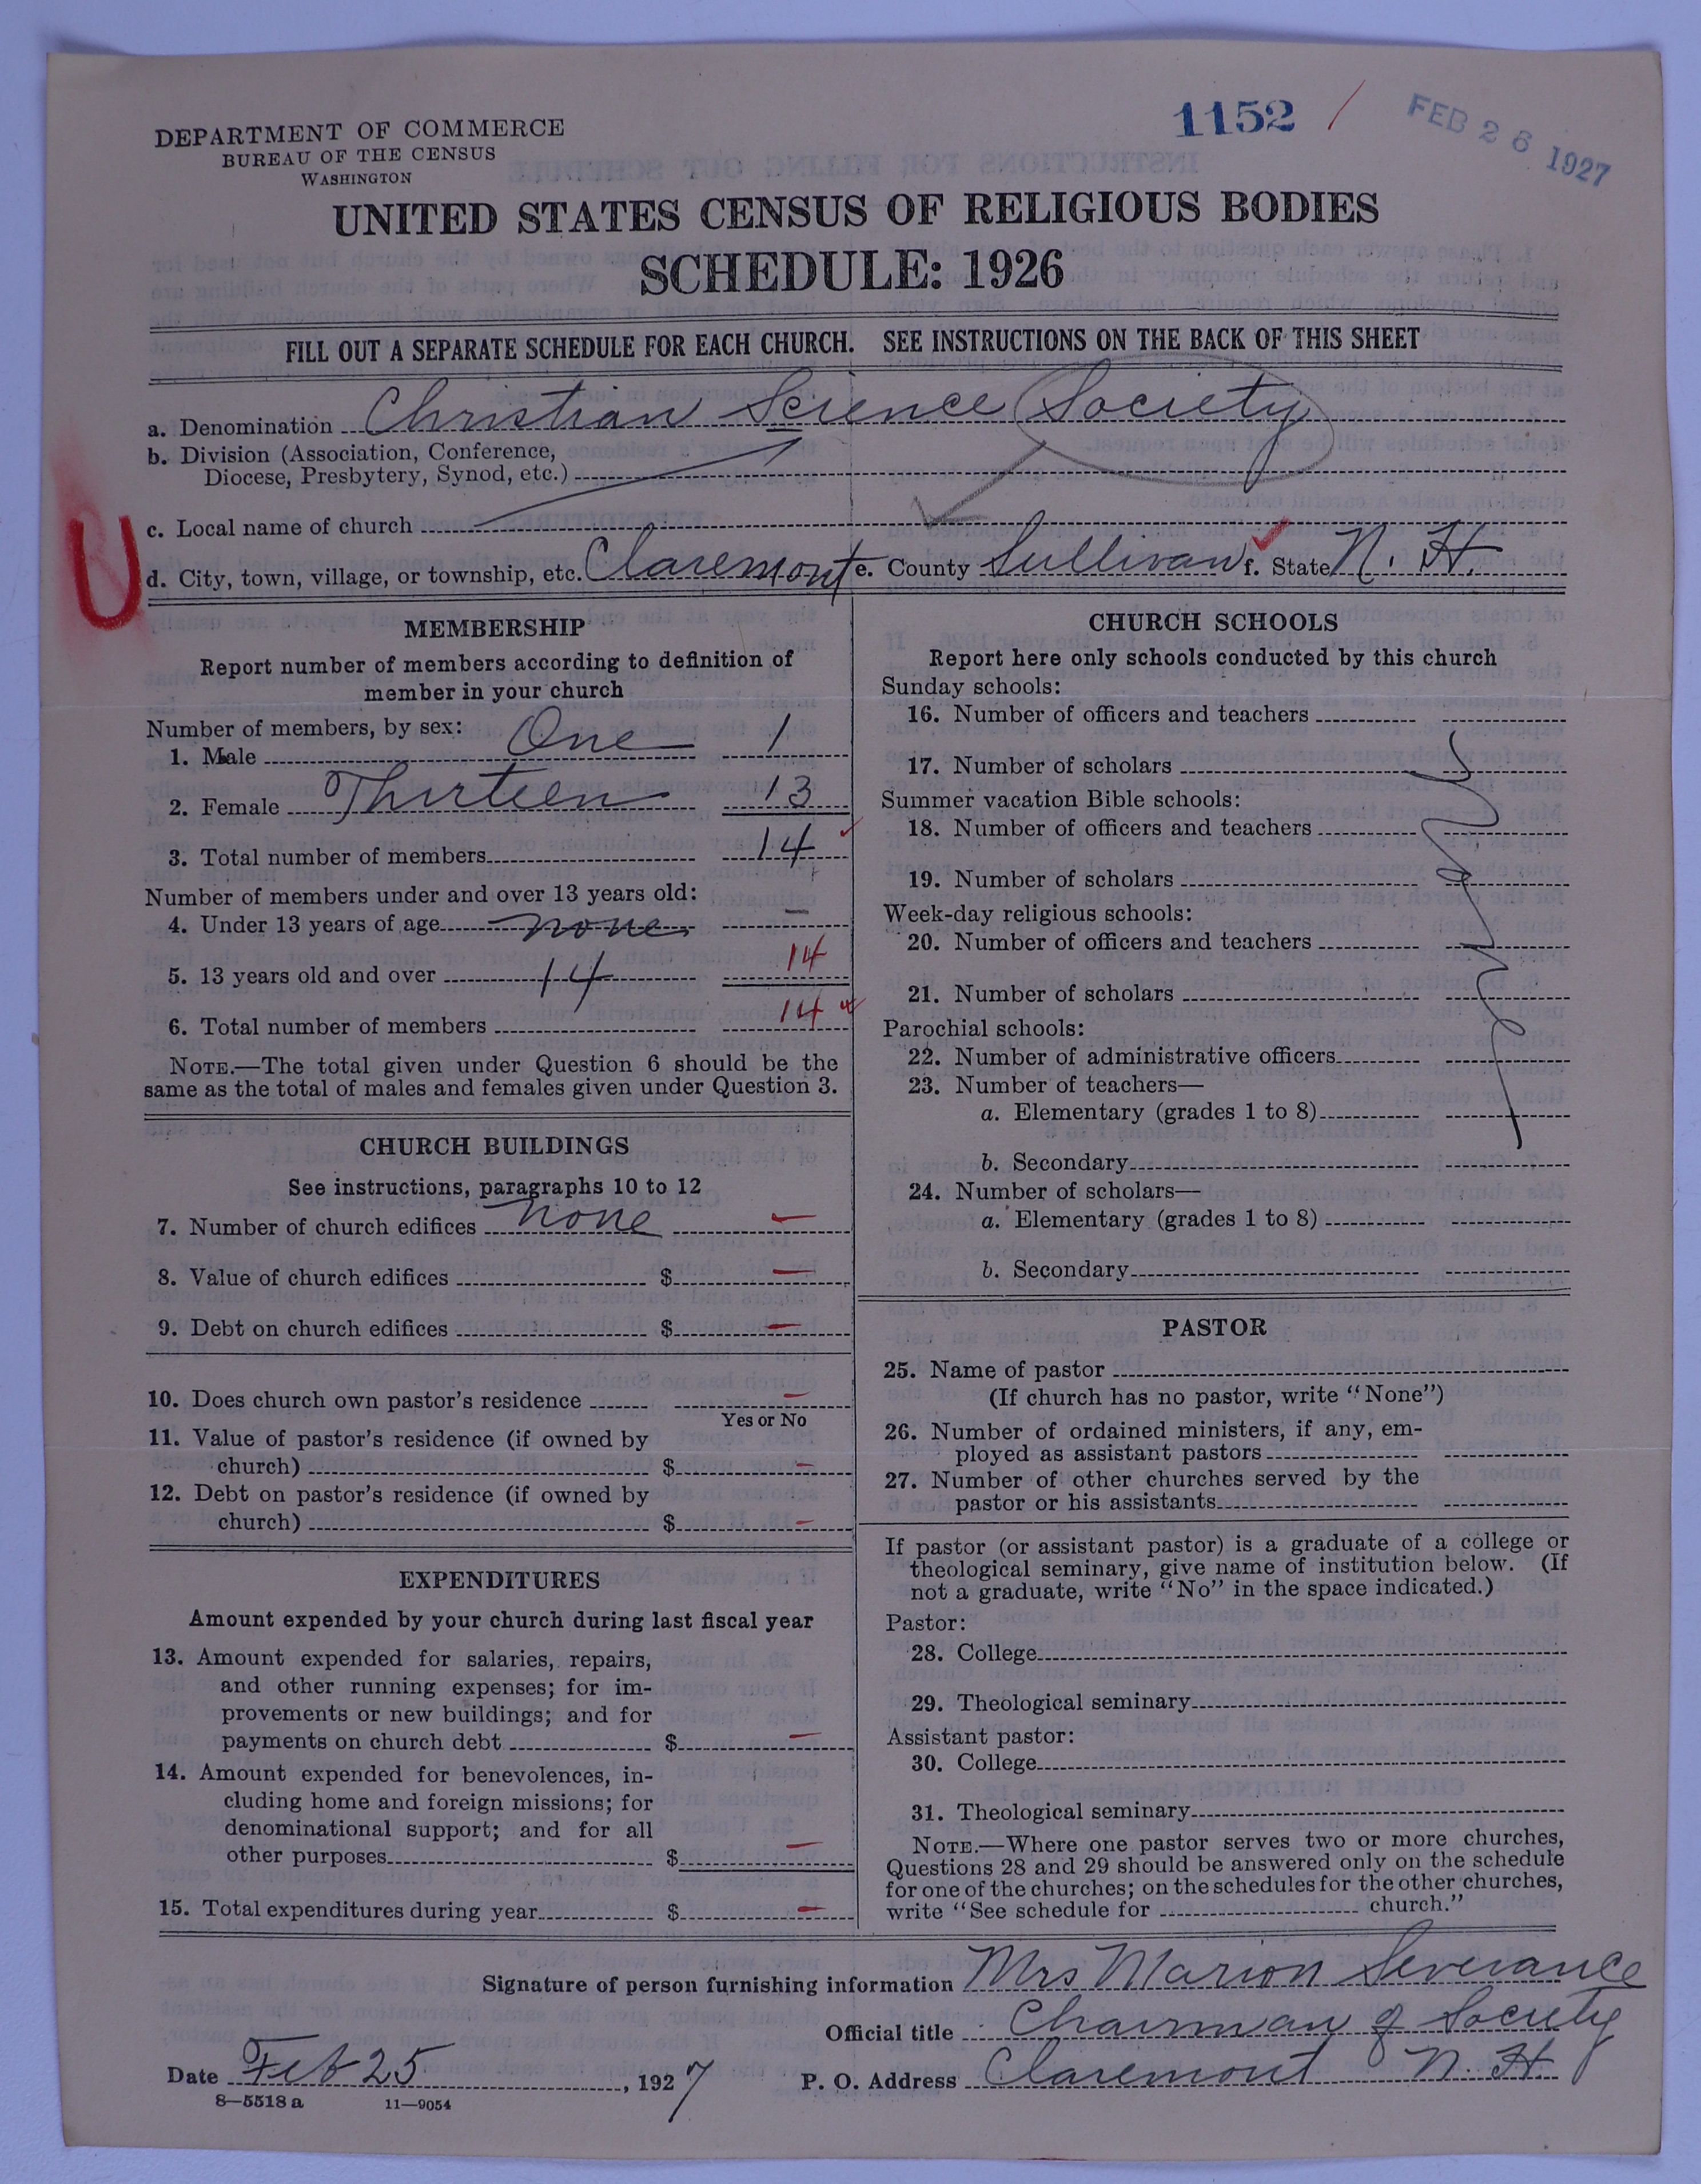 1152 /
FEB 26 1927
DEPARTMENT OF COMMERCE
BUREAU OF THE CENSUS
WASHINGTON
UNITED STATES CENSUS OF RELIGIOUS BODIES
SCHEDULE: 1926
FILL OUT A SEPARATE SCHEDULE FOR EACH CHURCH. SEE INSTRUCTIONS ON THE BACK OF THIS SHEET
a. Denomination Christian Science Society
b. Division (Association, Conference,
Diocese, Presbytery, Synod, etc.)
c. Local name of church
U
d. City, town, village, or township, etc. Claremont e. County Sullivan f. State N. H.
MEMBERSHIP
Report number of members according to definition of
member in your church
Number of members, by sex:
1. Male One 1
2. Female Thirteen 13
3. Total number of members 14
Number of members under and over 13 years old:
4. Under 13 years of age none –
5. 13 years old and over 14 14
6. Total number of members 14
NOTE.—The total given under Question 6 should be the
same as the total of males and females given under Question 3.
CHURCH BUILDINGS
See instructions, paragraphs 10 to 12
7. Number of church edifices none –
8. Value of church edifices $ –
9. Debt on church edifices $ –
10. Does church own pastor's residence –
Yes or No
11. Value of pastor's residence (if owned by
church) $ –
12. Debt on pastor's residence (if owned by
church) $ –
EXPENDITURES
Amount expended by your church during last fiscal year
13. Amount expended for salaries, repairs,
and other running expenses; for im-
provements or new buildings; and for
payments on church debt $ –
14. Amount expended for benevolences, in-
cluding home and foreign missions; for
denominational support; and for all
other purposes $ –
15. Total expenditures during year $ –
CHURCH SCHOOLS
Report here only schools conducted by this church
Sunday schools:
16. Number of officers and teachers
17. Number of scholars
Summer vacation Bible schools:
18. Number of officers and teachers
19. Number of scholars
Week-day religious schools:
20. Number of officers and teachers
21. Number of scholars
Parochial schools:
22. Number of administrative officers
23. Number of teachers—
a. Elementary (grades 1 to 8)
b. Secondary
24. Number of scholars—
a. Elementary (grades 1 to 8)
b. Secondary
PASTOR
25. Name of pastor
(If church has no pastor, write "None")
26. Number of ordained ministers, if any, em-
ployed as assistant pastors
27. Number of other churches served by the
pastor or his assistants
If pastor (or assistant pastor) is a graduate of a college or
theological seminary, give name of institution below. (If
not a graduate, write "No" in the space indicated.)
Pastor:
28. College
29. Theological seminary
Assistant pastor:
30. College
31. Theological seminary
NOTE.—Where one pastor serves two or more churches,
Questions 28 and 29 should be answered only on the schedule
for one of the churches; on the schedules for the other churches,
write "See schedule for church."
Signature of person furnishing information Mrs Marion Severance
Official title Chairman of Society
Date Feb 25, 1927 P. O. Address Claremont N. H.
8—5518 a 11—9054